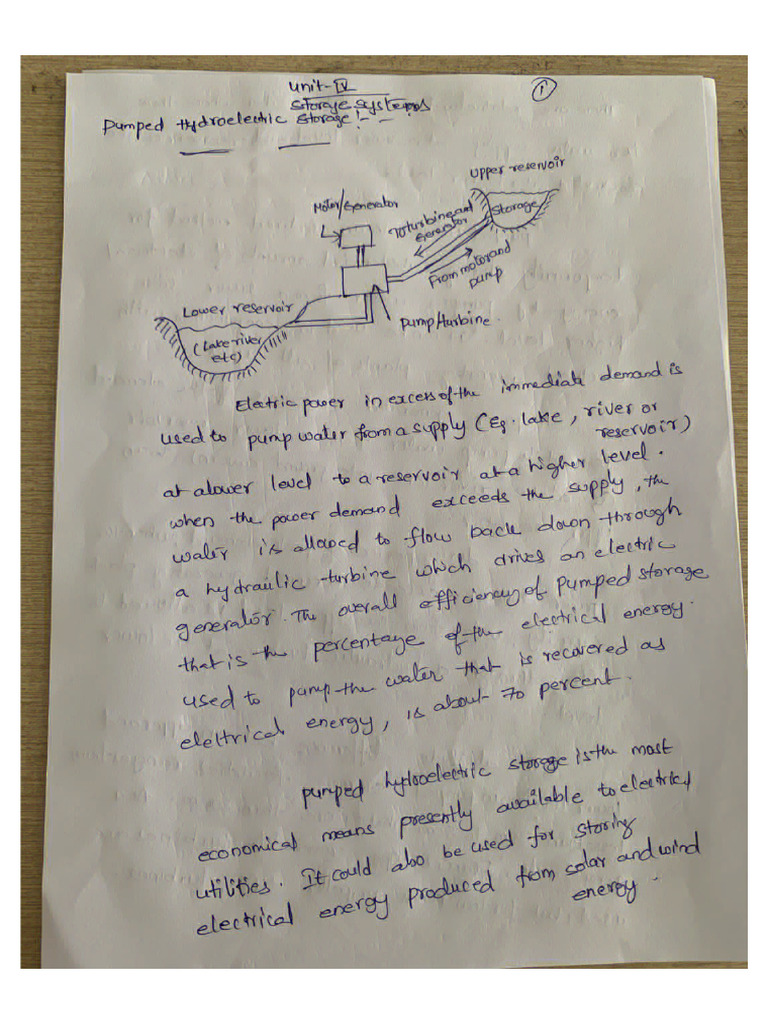 Unit-IV
Storage systems
1
Pumped Hydroelectric Storage:-
Upper reservoir
Motor/Generator
Storage
To turbine and
Generator
From motor and
pump
Lower reservoir
(Lake river
etc)
Pump/turbine
Electric power in excess of the immediate demand is
used to pump water from a supply (Eg. lake, river or
reservoir)
at a lower level to a reservoir at a higher level.
when the power demand exceeds the supply, the
water is allowed to flow back down through
a hydraulic turbine which drives an electric
generator. The overall efficiency of pumped storage
that is the percentage of the electrical energy.
used to pump the water that is recovered as
eleltrical energy, is about 70 percent.
pumped hyloelectric storage is the most
economical means presently available to electrical
utilities. It could also be used for storing
electrical energy produced from solar and wind
energy.